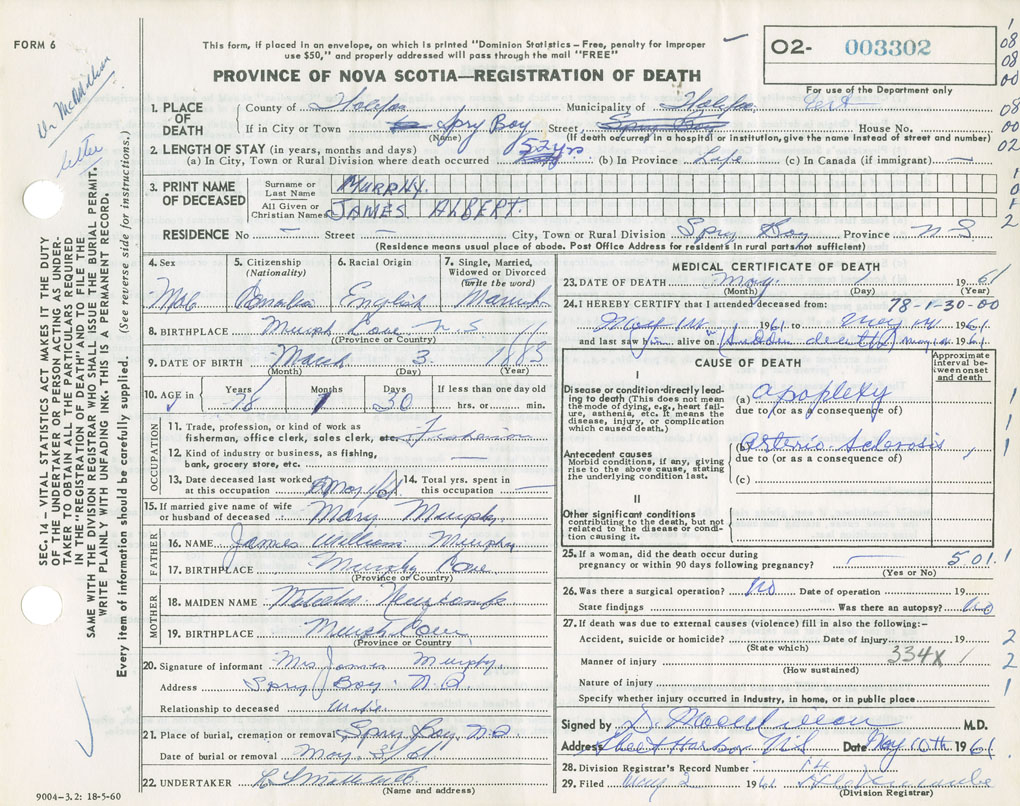 FORM 6
This form, if placed in an envelope, on which is printed "Dominion Statistics – Free, penalty for improper
use $50," and properly addressed will pass through the mail "FREE"
O2- 003302
PROVINCE OF NOVA SCOTIA—REGISTRATION OF DEATH
For use of the Department only
Dr McMillan
letter
1. PLACE OF DEATH
County of Halifax Municipality of Halifax
If in City or Town Spry Bay Street House No.
(Name) (If death occurred in a hospital or institution, give the name instead of street and number)
2. LENGTH OF STAY (in years, months and days)
(a) In City, Town or Rural Division where death occurred 52 yrs (b) In Province Life (c) In Canada (if immigrant) —
3. PRINT NAME OF DECEASED
Surname or Last Name MURPHY.
All Given or Christian Names JAMES ALBERT.
RESIDENCE No — Street — City, Town or Rural Division Spry Bay Province N S
(Residence means usual place of abode. Post Office Address for residents in rural parts not sufficient)
4. Sex
5. Citizenship (Nationality) Canada
6. Racial Origin English
7. Single, Married, Widowed or Divorced (write the word) Married
8. BIRTHPLACE Murph Cove N. S
(Province or Country)
9. DATE OF BIRTH March 3 1883
(Month) (Day) (Year)
10. AGE in Years 78 Months 1 Days 30 If less than one day old hrs. or min.
OCCUPATION
11. Trade, profession, or kind of work as fisherman, office clerk, sales clerk, etc. Fisherman
12. Kind of industry or business, as fishing, bank, grocery store, etc. —
13. Date deceased last worked at this occupation May/61
14. Total yrs. spent in this occupation —
15. If married give name of wife or husband of deceased Mary Murphy
FATHER
16. NAME James William Murphy
17. BIRTHPLACE Murphy Cove
(Province or Country)
MOTHER
18. MAIDEN NAME Newcombe
19. BIRTHPLACE Murph Cove
(Province or Country)
20. Signature of informant Mrs James Murphy.
Address Spry Bay. N.S.
Relationship to deceased Wife
21. Place of burial, cremation or removal Spry Bay, N.S
Date of burial or removal May. 3/61
22. UNDERTAKER
(Name and address)
9004-3.2: 18-5-60
MEDICAL CERTIFICATE OF DEATH
23. DATE OF DEATH May 1 1961
(Month) (Day) (Year)
78-1-30-00
24. I HEREBY CERTIFY that I attended deceased from:
May 1st 1961 to May 1st 1961
and last saw him alive on (sudden death) May 1st 1961.
CAUSE OF DEATH
Approximate interval between onset and death
I
Disease or condition directly leading to death (This does not mean the mode of dying, e.g., heart failure, asthenia, etc. It means the disease, injury, or complication which caused death.)
(a) apoplexy
due to (or as a consequence of)
Antecedent causes
Morbid conditions, if any, giving rise to the above cause, stating the underlying condition last.
(b) Arterio Sclerosis
due to (or as a consequence of)
(c)
II
Other significant conditions
contributing to the death, but not related to the disease or condition causing it.
25. If a woman, did the death occur during pregnancy or within 90 days following pregnancy? —
(Yes or No)
501
26. Was there a surgical operation? No Date of operation 19
State findings Was there an autopsy? No
27. If death was due to external causes (violence) fill in also the following:–
Accident, suicide or homicide? Date of injury 19
(State which)
334X
Manner of injury
(How sustained)
Nature of injury
Specify whether injury occurred in industry, in home, or in public place
Signed by M.D.
Address Sheet Harbor N.S Date May 10th 1961
28. Division Registrar's Record Number 14
29. Filed May 2 1961
(Division Registrar)
SEC. 14 – VITAL STATISTICS ACT MAKES IT THE DUTY
OF THE UNDERTAKER OR PERSON ACTING AS UNDER-
TAKER TO OBTAIN ALL THE PARTICULARS REQUIRED
IN THE "REGISTRATION OF DEATH" AND TO FILE THE
SAME WITH THE DIVISION REGISTRAR WHO SHALL ISSUE THE BURIAL PERMIT.
WRITE PLAINLY WITH UNFADING INK. THIS IS A PERMANENT RECORD.
Every item of information should be carefully supplied. (See reverse side for instructions.)